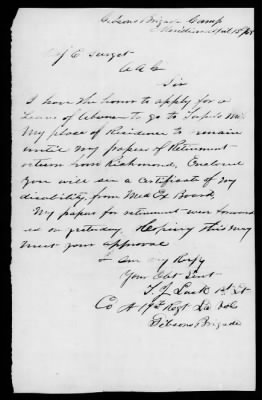 Gibsons Brigade Camp
Meridian Feb 15th /65
Maj E Surget
A A G
Sir
I have the honor to apply for a
Leave of Absence to go to Tupelo Miss
My place of Residence to remain
until my papers of Retirement
return from Richmond, Enclosed
you will see a Certificate of my
disability, from Med Ex Board,
My papers for retirement were forward
ed on yesterday. Hopeing this may
meet your approval
I am very Respy
Your Obt Servt
T. J. Luck 1st Lt
Co A 19th Regt La Vol
Gibsons Brigade